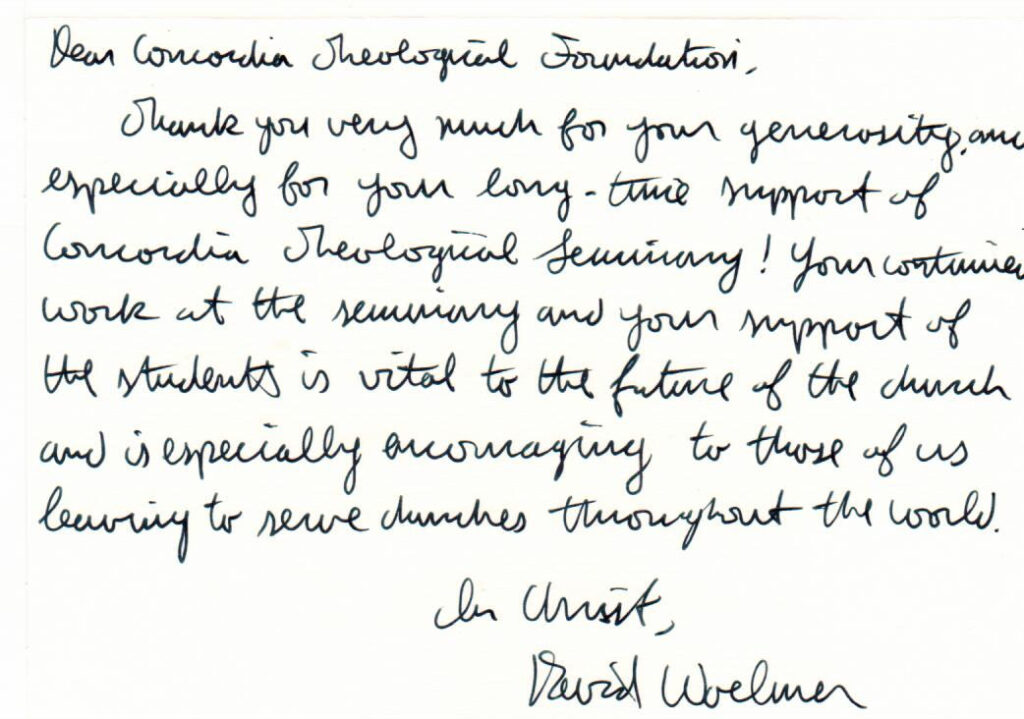 Dear Concordia Theological Foundation,
Thank you very much for your generosity, and
especially for your long-time support of
Concordia Theological Seminary! Your continued
work at the seminary and your support of
the students is vital to the future of the church
and is especially encouraging to those of us
leaving to serve churches throughout the world.
In Christ,
David Woelmer